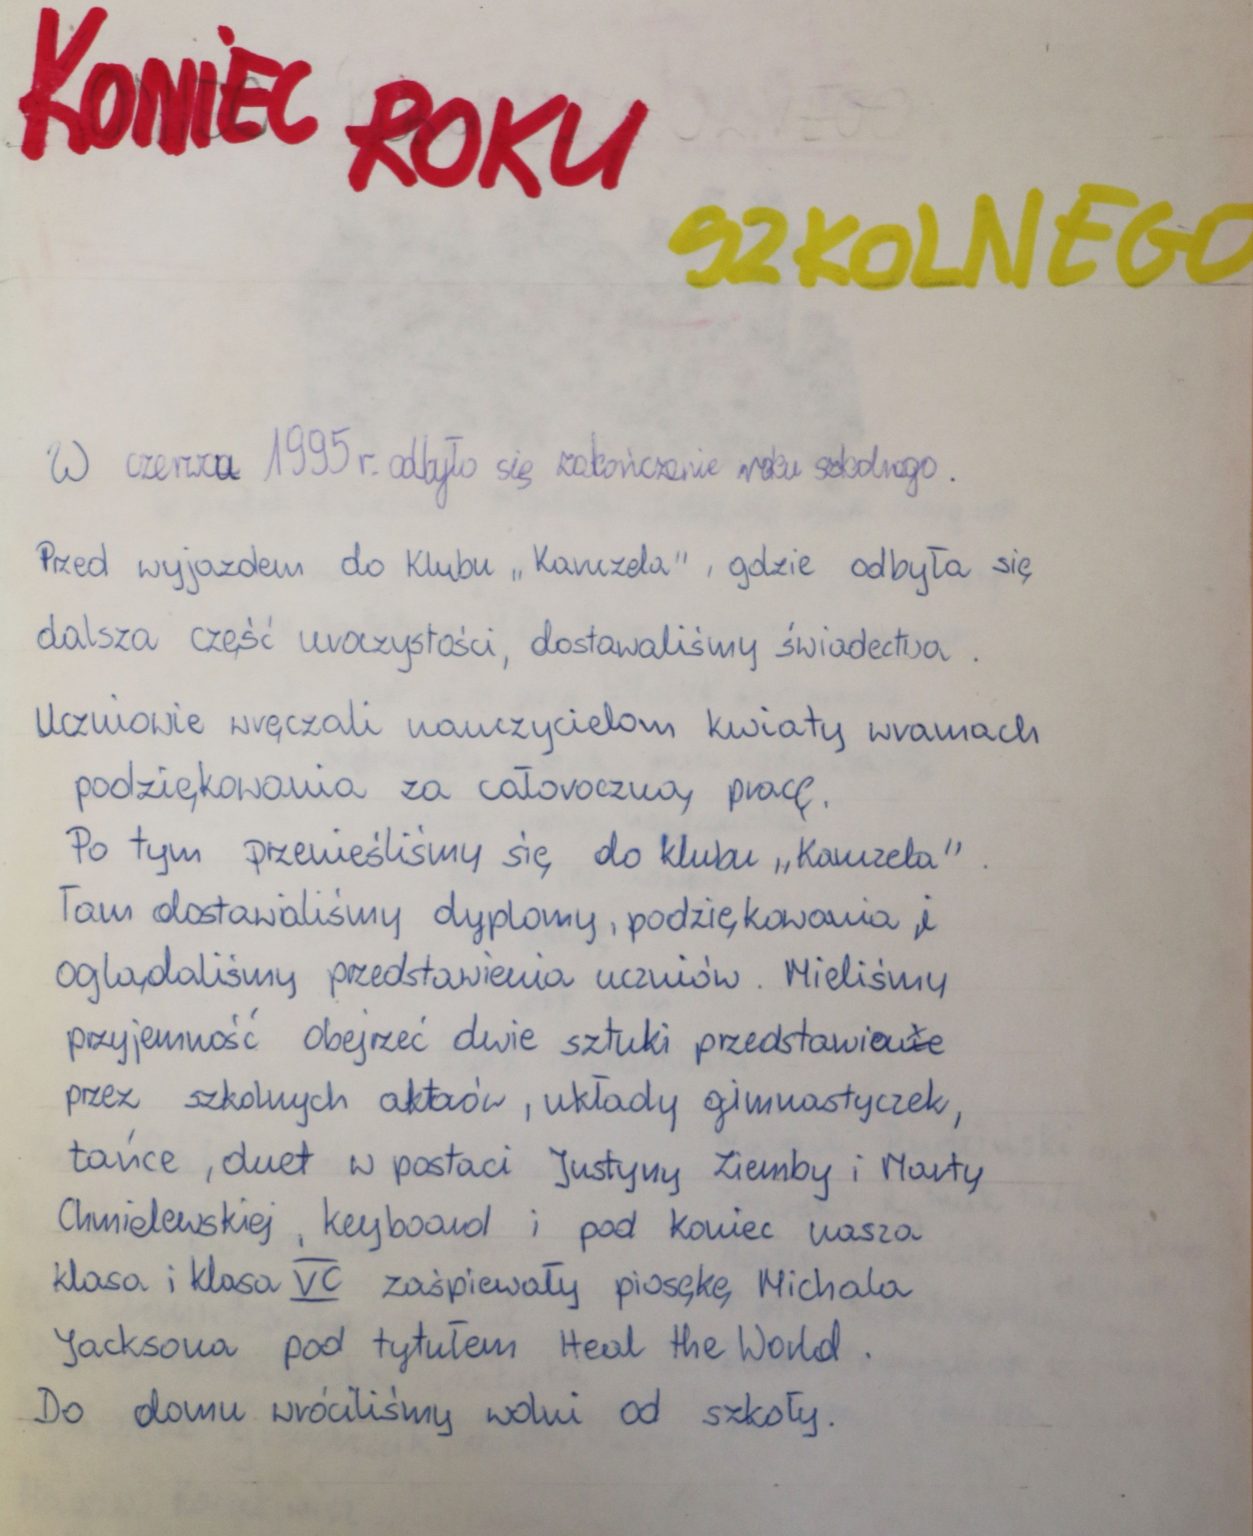 KONIEC ROKU
SZKOLNEGO
W czerwcu 1995 r. odbyło się zakończenie roku szkolnego.
Przed wyjazdem do Klubu „Kamzela", gdzie odbyła się
dalsza część uroczystości, dostawaliśmy świadectwa.
Uczniowie wręczali nauczycielom kwiaty wramach
podziękowania za całoroczną pracę.
Po tym przenieśliśmy się do klubu „Kamzela".
Tam dostawaliśmy dyplomy, podziękowania i
oglądaliśmy przedstawienia uczniów. Mieliśmy
przyjemność obejrzeć dwie sztuki
przez szkolnych aktorów, układy gimnastyczek,
tańce, duet w postaci Justyny Ziemby i Marty
Chmielewskiej, keyboard i pod koniec nasza
klasa i klasa VC zaśpiewały piosękę Michala
Jacksona pod tytułem Heal the World.
Do domu wróciliśmy wolni od szkoły.